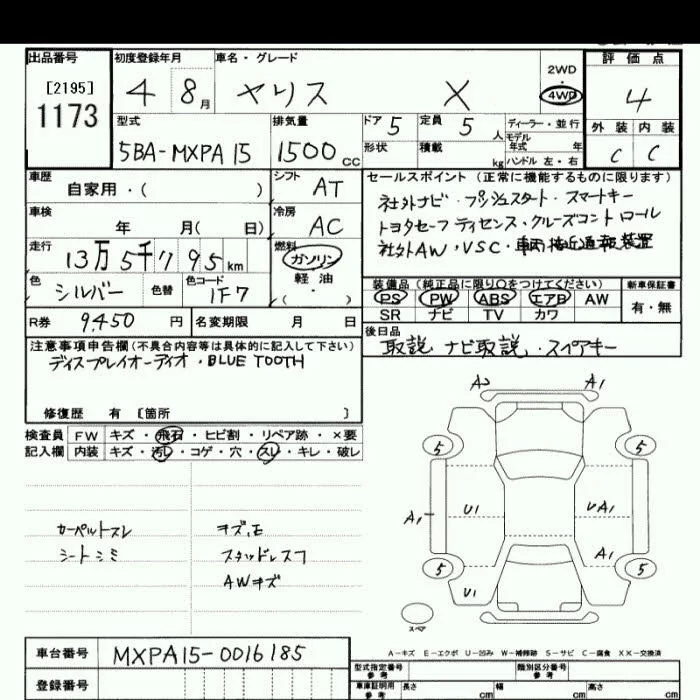 出品番号 初度登録年月 車名・グレード 2WD 評価点
[2195] 4 8月 ヤリス X ・ 4
1173 4WD
型式 排気量 ドア 5 定員 5人 ディーラー・並行 外装 内装
5BA-MXPA15 1500cc 形状 積載 kg モデル年式 年 C C
ハンドル 左・右
車歴 シフト AT セールスポイント (正常に機能するものに限ります)
自家用・( ) 社外ナビ・プッシュスタート・スマートキー
車検 冷房 AC トヨタセーフティセンス・クルーズコントロール
年 月( 日) 社外AW・VSC・車両接近通報装置
走行 燃料
13万5千795km ガソリン
軽油
色 シルバー 色替 色コード 1F7 ・ ( ) 装備品 (純正品に限り○をつけてください) 新車保証書
PS PW ABS エアB AW 有・無
R券 9,450円 名変期限 月 日 SR ナビ TV カワ
注意事項申告欄(不具合内容等は具体的に記入して下さい) 後日品
ディスプレイオーディオ・BLUE TOOTH 取説 ナビ取説・スペアキー
修復歴 有 [箇所 ]
検査員 FW キズ・飛石・ヒビ割・リペア跡・×要
記入欄 内装 キズ・汚レ・コゲ・穴・スレ・キレ・破レ
A2 A1
5 5
A1 U1 UA1
5 A1 5
U1
カーペットスレ
シートシミ
スタッドレス
AWキズ
スペア
A-キズ E-エクボ U-凹み W-補修跡 S-サビ C-腐食 XX-交換済
車台番号 MXPA15-0016185
型式指定番号 参考 類別区分番号 参考
登録番号 車庫証明用 参考 長さ cm 幅 cm 高さ cm